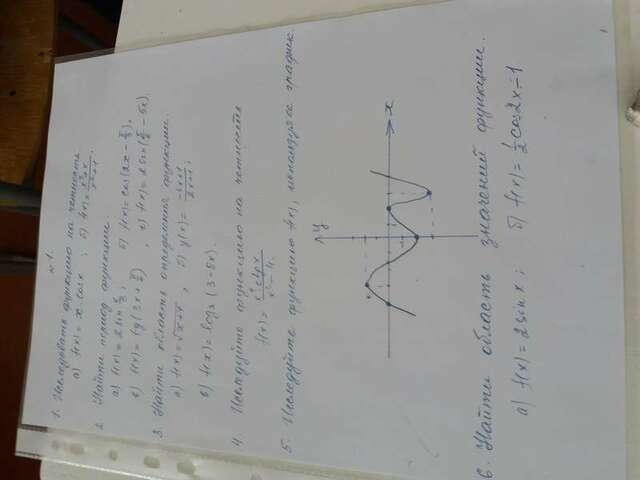 N 1.
1. Исследовать функцию на четность.
а) f(x) = x cos x ; б) f(x) =
2. Найти период функции.
а) f(x) = 2 sin x/2 ; б) f(x) = cos(2x -
в) f(x) = tg(3x + ; г) f(x) = 2 sin( - 5x).
3. Найти область определения функции.
а) f(x) = ; б) y(x) =
в) f(x) = log₂(3-5x).
4. Исследуйте функцию на четность
f(x) =
5. Исследуйте функцию f(x), используя график.
y
x
6. Найти область значений функции.
а) f(x) = 2 sin x ; б) f(x) = 1/2 cos 2x - 1